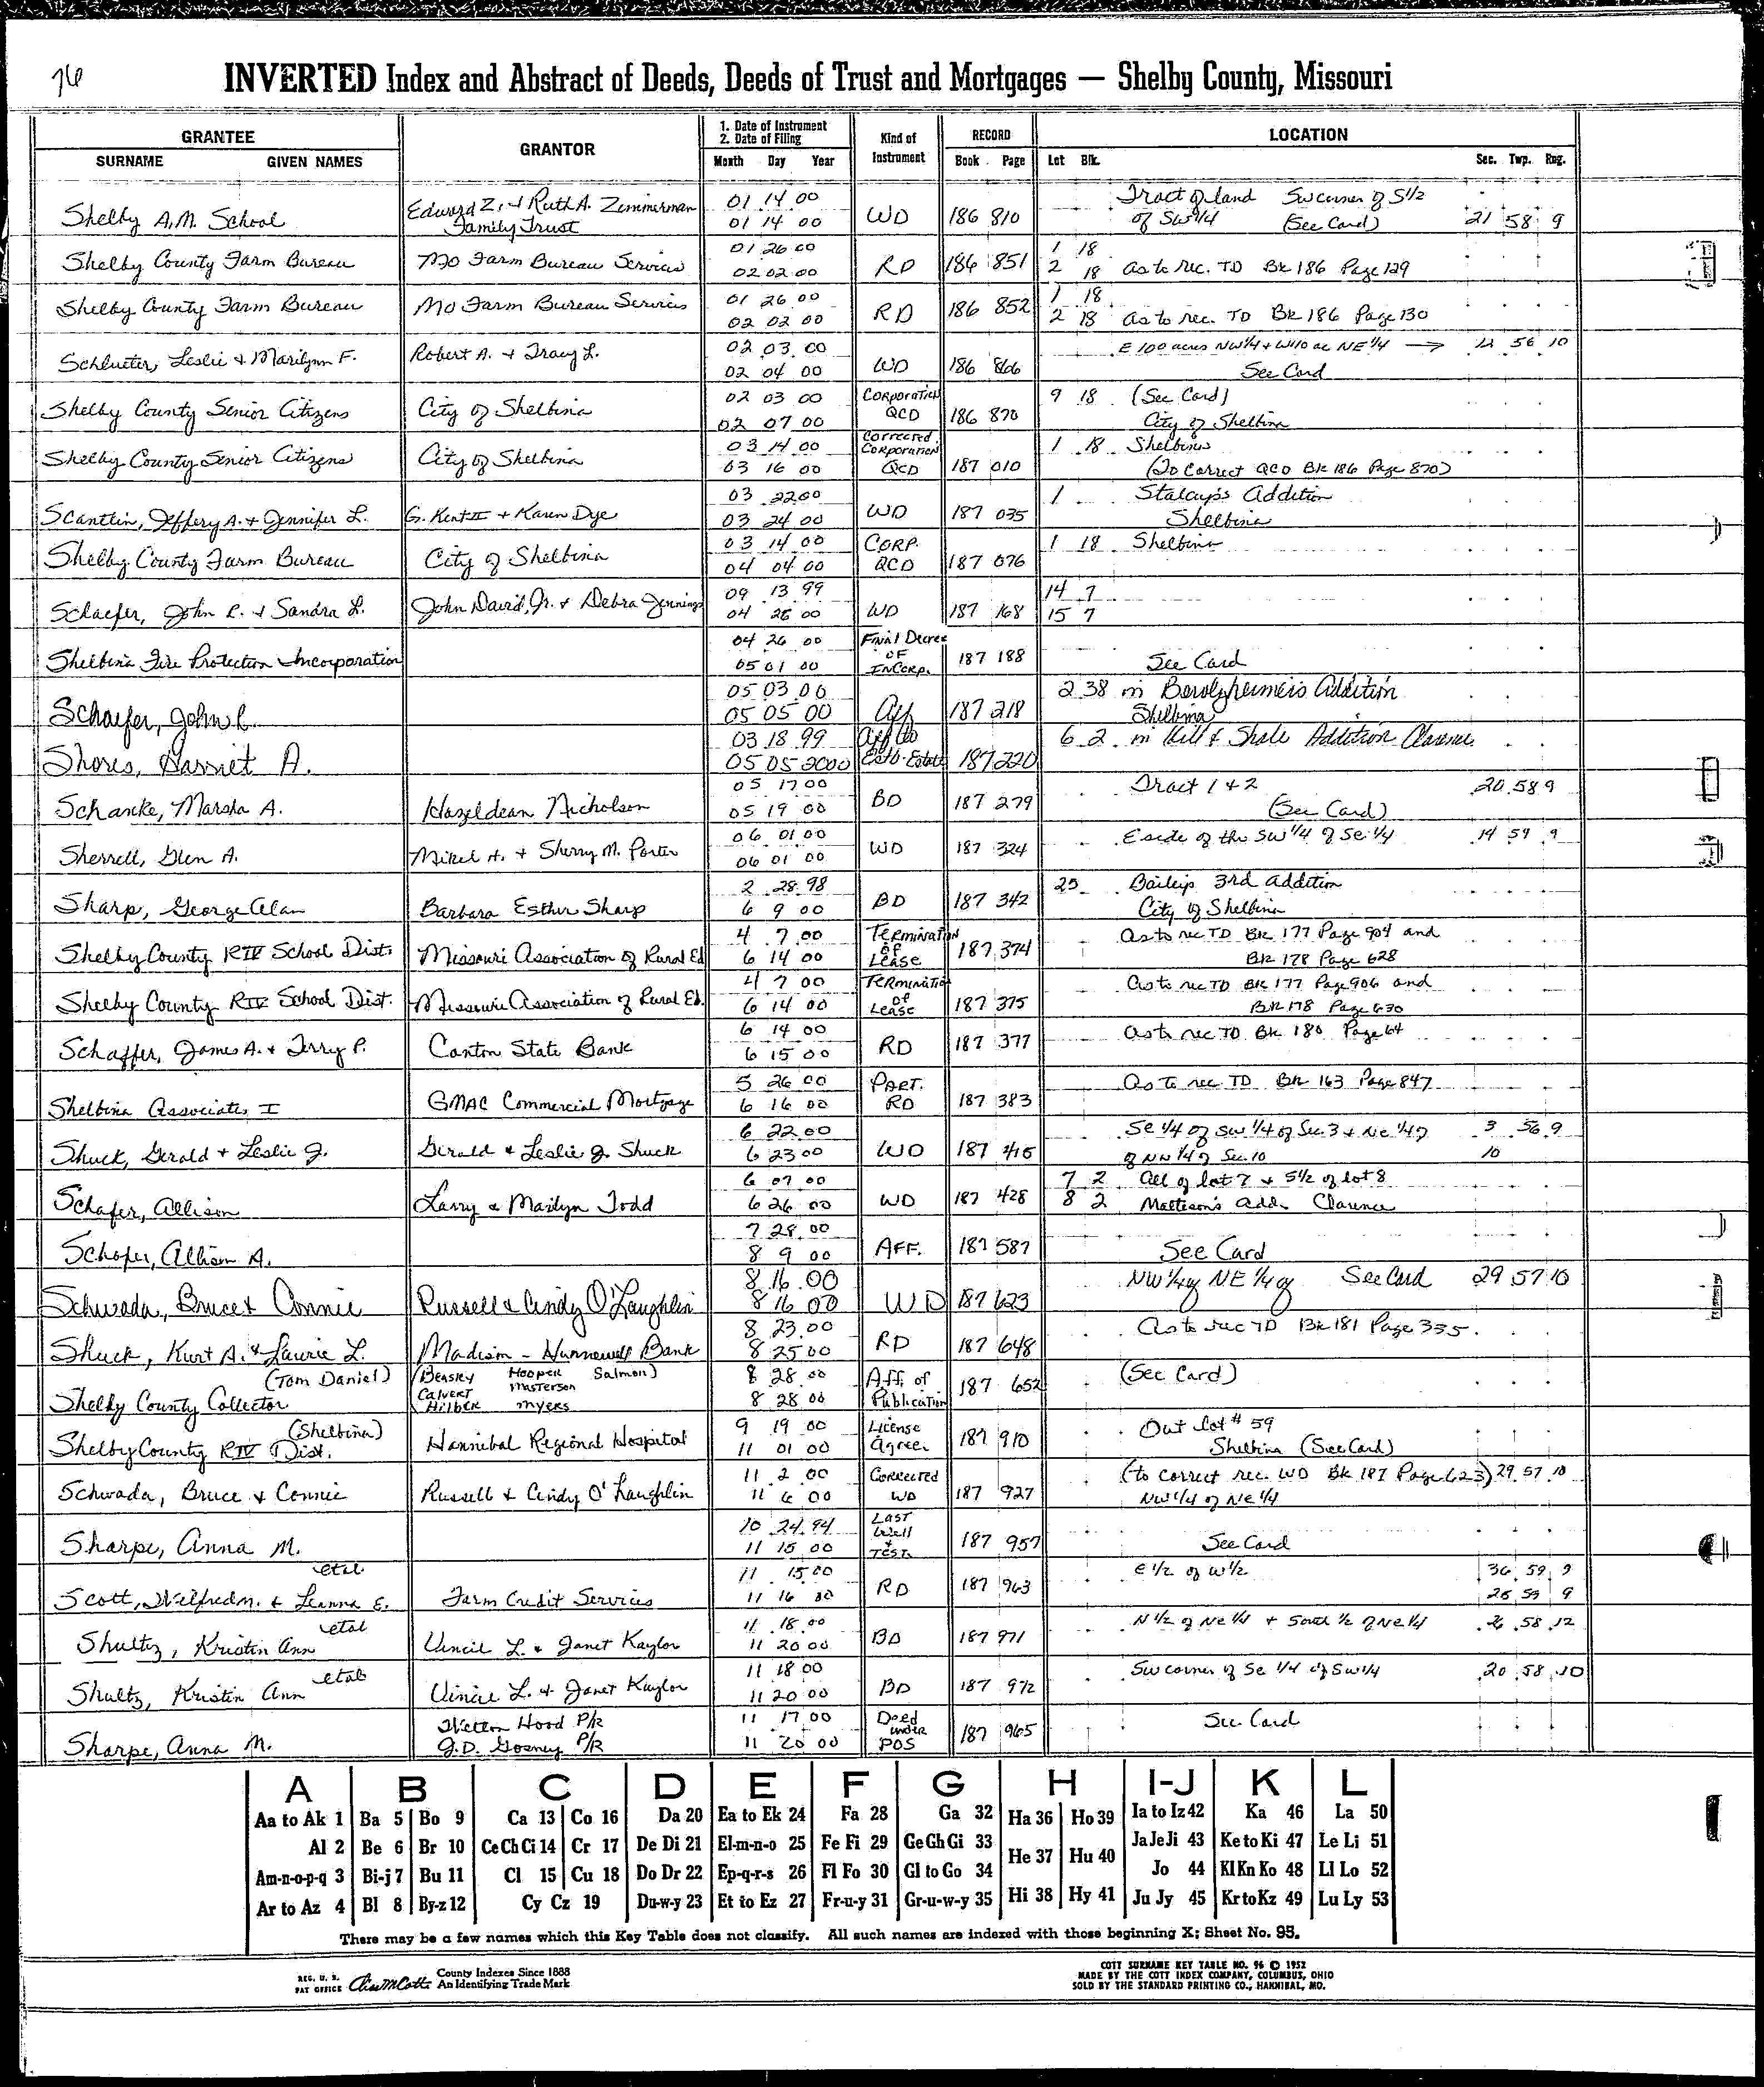 76
INVERTED Index and Abstract of Deeds, Deeds of Trust and Mortgages — Shelby County, Missouri
GRANTEE GRANTOR 1. Date of Instrument 2. Date of Filing Kind of Instrument RECORD LOCATION
SURNAME GIVEN NAMES Month Day Year Book Page Lot Blk. Sec. Twp. Rng.
Shelby A.M. School Edward Z. & Ruth A. Zimmerman Family Trust 01 14 00 01 14 00 WD 186 810 Tract of land SW corner of S1/2 of SW1/4 (See Card) 21 58 9
Shelby County Farm Bureau MO Farm Bureau Services 01 26 00 02 02 00 RD 186 851 1 18 2 18 As to rec. TD Bk 186 Page 129
Shelby County Farm Bureau MO Farm Bureau Services 01 26 00 02 02 00 RD 186 852 1 18 2 18 As to rec. TD Bk 186 Page 130
Schlueter, Leslie & Marilynn F. Robert A. & Tracy L. 02 03 00 02 04 00 WD 186 866 E 100 acres NW1/4 & W110 ac NE1/4 → 12 56 10 See Card
Shelby County Senior Citizens City of Shelbina 02 03 00 02 07 00 Corporation QCD 186 870 9 18 (See Card) City of Shelbina
Shelby County Senior Citizens City of Shelbina 03 14 00 03 16 00 Corrected Corporation QCD 187 010 1 18 Shelbina (To Correct QCD Bk 186 Page 870)
Scanttin, Jeffery A. & Jennifer L. G. Kent II & Karen Dye 03 22 00 03 24 00 WD 187 035 1 Stalcup's Addition Shelbina
Shelby County Farm Bureau City of Shelbina 03 14 00 04 04 00 CORP. QCD 187 076 1 18 Shelbina
Schaefer, John R. & Sandra L. John David, Jr. & Debra Jennings 09 13 99 04 28 00 WD 187 168 14 7 15 7
Shelbina Fire Protection Incorporation 04 26 00 05 01 00 Final Decree OF INCORP. 187 188 See Card
Schaefer, John R. 05 03 00 05 05 00 Aff 187 218 2 38 in Berolzheimer's Addition Shelbina
Shores, Harriet A. 03 18 99 05 05 2000 Aff to Estb. Estate 187 220 6 2 in Hill & Shale Addition Clarence
Schanke, Marsha A. Hazeldean Nicholson 05 17 00 05 19 00 BD 187 279 Tract 1 & 2 (See Card) 20 58 9
Sherrell, Glen A. Mikel A. & Sherry M. Porter 06 01 00 06 01 00 WD 187 324 E side of the SW 1/4 of Se 1/4 14 59 9
Sharp, George Alan Barbara Esther Sharp 2 28 98 6 9 00 BD 187 342 25 Baileys 3rd Addition City of Shelbina
Shelby County RIV School Dist. Missouri Association of Rural Ed 4 7 00 6 14 00 Termination of Lease 187 374 As to rec TD Bk 177 Page 904 and Bk 178 Page 628
Shelby County RIV School Dist. Missouri Association of Rural Ed. 4 7 00 6 14 00 Termination of Lease 187 375 As to rec TD Bk 177 Page 906 and Bk 178 Page 630
Schaffer, James A. & Terry P. Canton State Bank 6 14 00 6 15 00 RD 187 377 As to rec TD Bk 180 Page 64
Shelbina Associates I GMAC Commercial Mortgage 5 26 00 6 16 00 PART. RD 187 383 As to rec TD Bk 163 Page 847
Shuck, Gerald & Leslie J. Gerald & Leslie J. Shuck 6 22 00 6 23 00 WD 187 415 Se 1/4 of SW 1/4 of Sec. 3 & Ne 1/4 of NW 1/4 of Sec. 10 3 56 9 10
Schafer, Allison Larry & Marilyn Todd 6 07 00 6 26 00 WD 187 428 7 2 All of lot 7 & S1/2 of lot 8 8 2 Matteson's Add. Clarence
Schofer, Allison A. 7 28 00 8 9 00 AFF. 187 587 See Card
Schwada, Bruce & Connie Russell & Cindy O'Laughlin 8 16 00 8 16 00 WD 187 623 NW 1/4 of NE 1/4 of See Card 29 57 10
Shuck, Kurt A. & Laurie L. Madison - Hunnewell Bank 8 23 00 8 25 00 RD 187 648 As to rec TD Bk 181 Page 335
(Tom Daniel) Shelby County Collector (Beasley Hooper Salmon) Calvert Masterson Hilber Myers 8 28 00 8 28 00 Aff. of Publication 187 652 (See Card)
(Shelbina) Shelby County RIV Dist. Hannibal Regional Hospital 9 19 00 11 01 00 License Agree. 187 910 Out Lot # 59 Shelbina (See Card)
Schwada, Bruce & Connie Russell & Cindy O'Laughlin 11 2 00 11 6 00 Corrected WD 187 927 (to correct rec. WD Bk 187 Page 623) 29 57 10 NW 1/4 of Ne 1/4
Sharpe, Anna M. 10 24 94 11 15 00 LAST Will & TEST. 187 957 See Card
Scott, Wilfred M. & Leanna E. etal Farm Credit Services 11 15 00 11 16 00 RD 187 963 E 1/2 of W 1/2 36 59 9 25 59 9
Shultz, Kristin Ann etal Vincil L. & Janet Kaylor 11 18 00 11 20 00 BD 187 971 N 1/2 of Ne 1/4 + South 1/2 of Ne 1/4 26 58 12
Shultz, Kristin Ann etal Vincil L. & Janet Kaylor 11 18 00 11 20 00 BD 187 972 SW corner of Se 1/4 of SW 1/4 20 58 10
Sharpe, Anna M. Hood P/R J.D. Gosney P/R 11 17 00 11 20 00 Deed under POS 187 965 See Card
A B C D E F G H I-J K L
Aa to Ak 1 Ba 5 Bo 9 Ca 13 Co 16 Da 20 Ea to Ek 24 Fa 28 Ga 32 Ha 36 Ho 39 Ia to Iz 42 Ka 46 La 50
Al 2 Be 6 Br 10 Ce Ch Ci 14 Cr 17 De Di 21 El-m-n-o 25 Fe Fi 29 Ge Gh Gi 33 He 37 Hu 40 Ja Je Ji 43 Ke to Ki 47 Le Li 51
Am-n-o-p-q 3 Bi-j 7 Bu 11 Cl 15 Cu 18 Do Dr 22 Ep-q-r-s 26 Fl Fo 30 Gl to Go 34 Jo 44 Kl Kn Ko 48 Ll Lo 52
Ar to Az 4 Bl 8 By-z 12 Cy Cz 19 Du-w-y 23 Et to Ez 27 Fr-u-y 31 Gr-u-w-y 35 Hi 38 Hy 41 Ju Jy 45 Kr to Kz 49 Lu Ly 53
There may be a few names which this Key Table does not classify. All such names are indexed with those beginning X; Sheet No. 95.
REG. U. S. PAT OFFICE County Indexes Since 1888 An Identifying Trade Mark
COTT SURNAME KEY TABLE NO. 96 © 1952
MADE BY THE COTT INDEX COMPANY, COLUMBUS, OHIO
SOLD BY THE STANDARD PRINTING CO., HANNIBAL, MO.